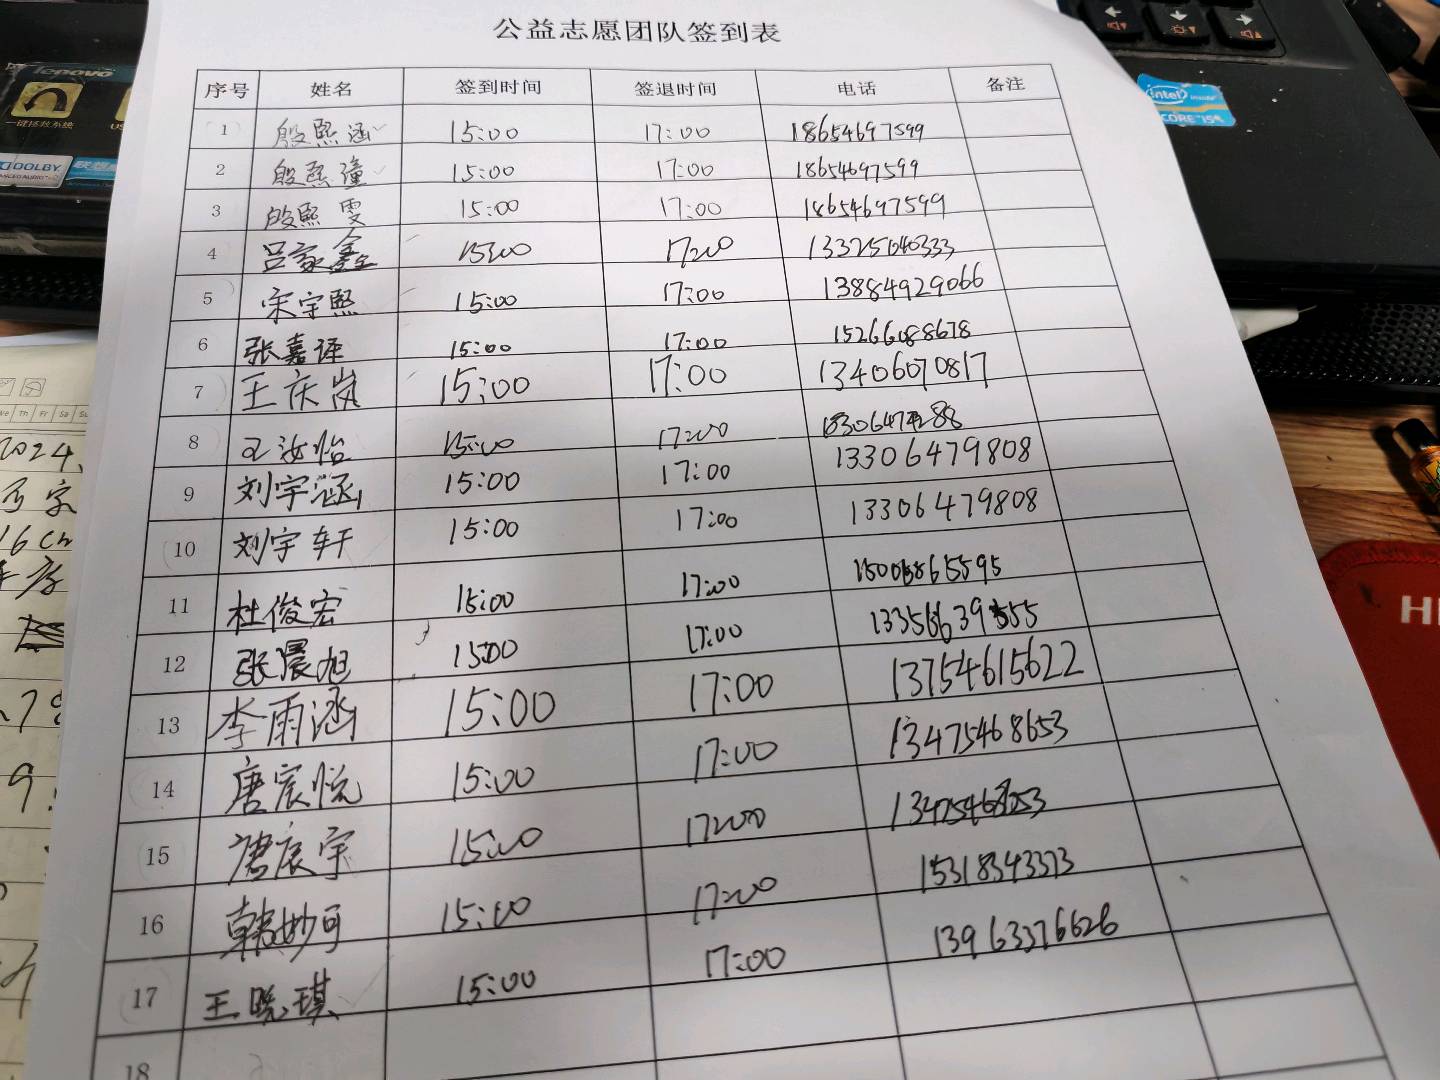 公益志愿团队签到表
序号 姓名 签到时间 签退时间 电话 备注
1 殷熙涵 15:00 17:00 18654697599
2 殷熙潼 15:00 17:00 18654697599
3 殷熙雯 15:00 17:00 18654697599
4 吕家鑫 15:00 17:00 13325040333
5 宋宇熙 15:00 17:00 13884929066
6 张嘉译 15:00 17:00 15266088678
7 王庆岚 15:00 17:00 13406070817
8 汝怡 15:00 17:00
9 刘宇涵 15:00 17:00 13306479808
10 刘宇轩 15:00 17:00 13306479808
11 杜俊宏 15:00 17:00
12 张晨旭 15:00 17:00
13 李雨涵 15:00 17:00 13754615622
14 唐宸悦 15:00 17:00 13475468653
15 唐宸宇 15:00 17:00
16 韩妙可 15:00 17:00 15318343373
17 王晓琪 15:00 17:00 13963376626
18
lenovo
一键拯救系统
DOLBY
intel inside
CORE i5
We Th Fr Sa Su
2024.
16cm
H